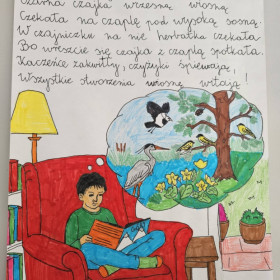 Czarna czajka wczesną wiosną
Czekała na czaplę pod wysoką sosną.
W czajniczku na nie herbatka czekała
Bo wreszcie się czajka z czaplą spotkała.
Kaczeńce zakwitły, czyżyki śpiewają,
Wszystkie stworzenia wiosnę witają!